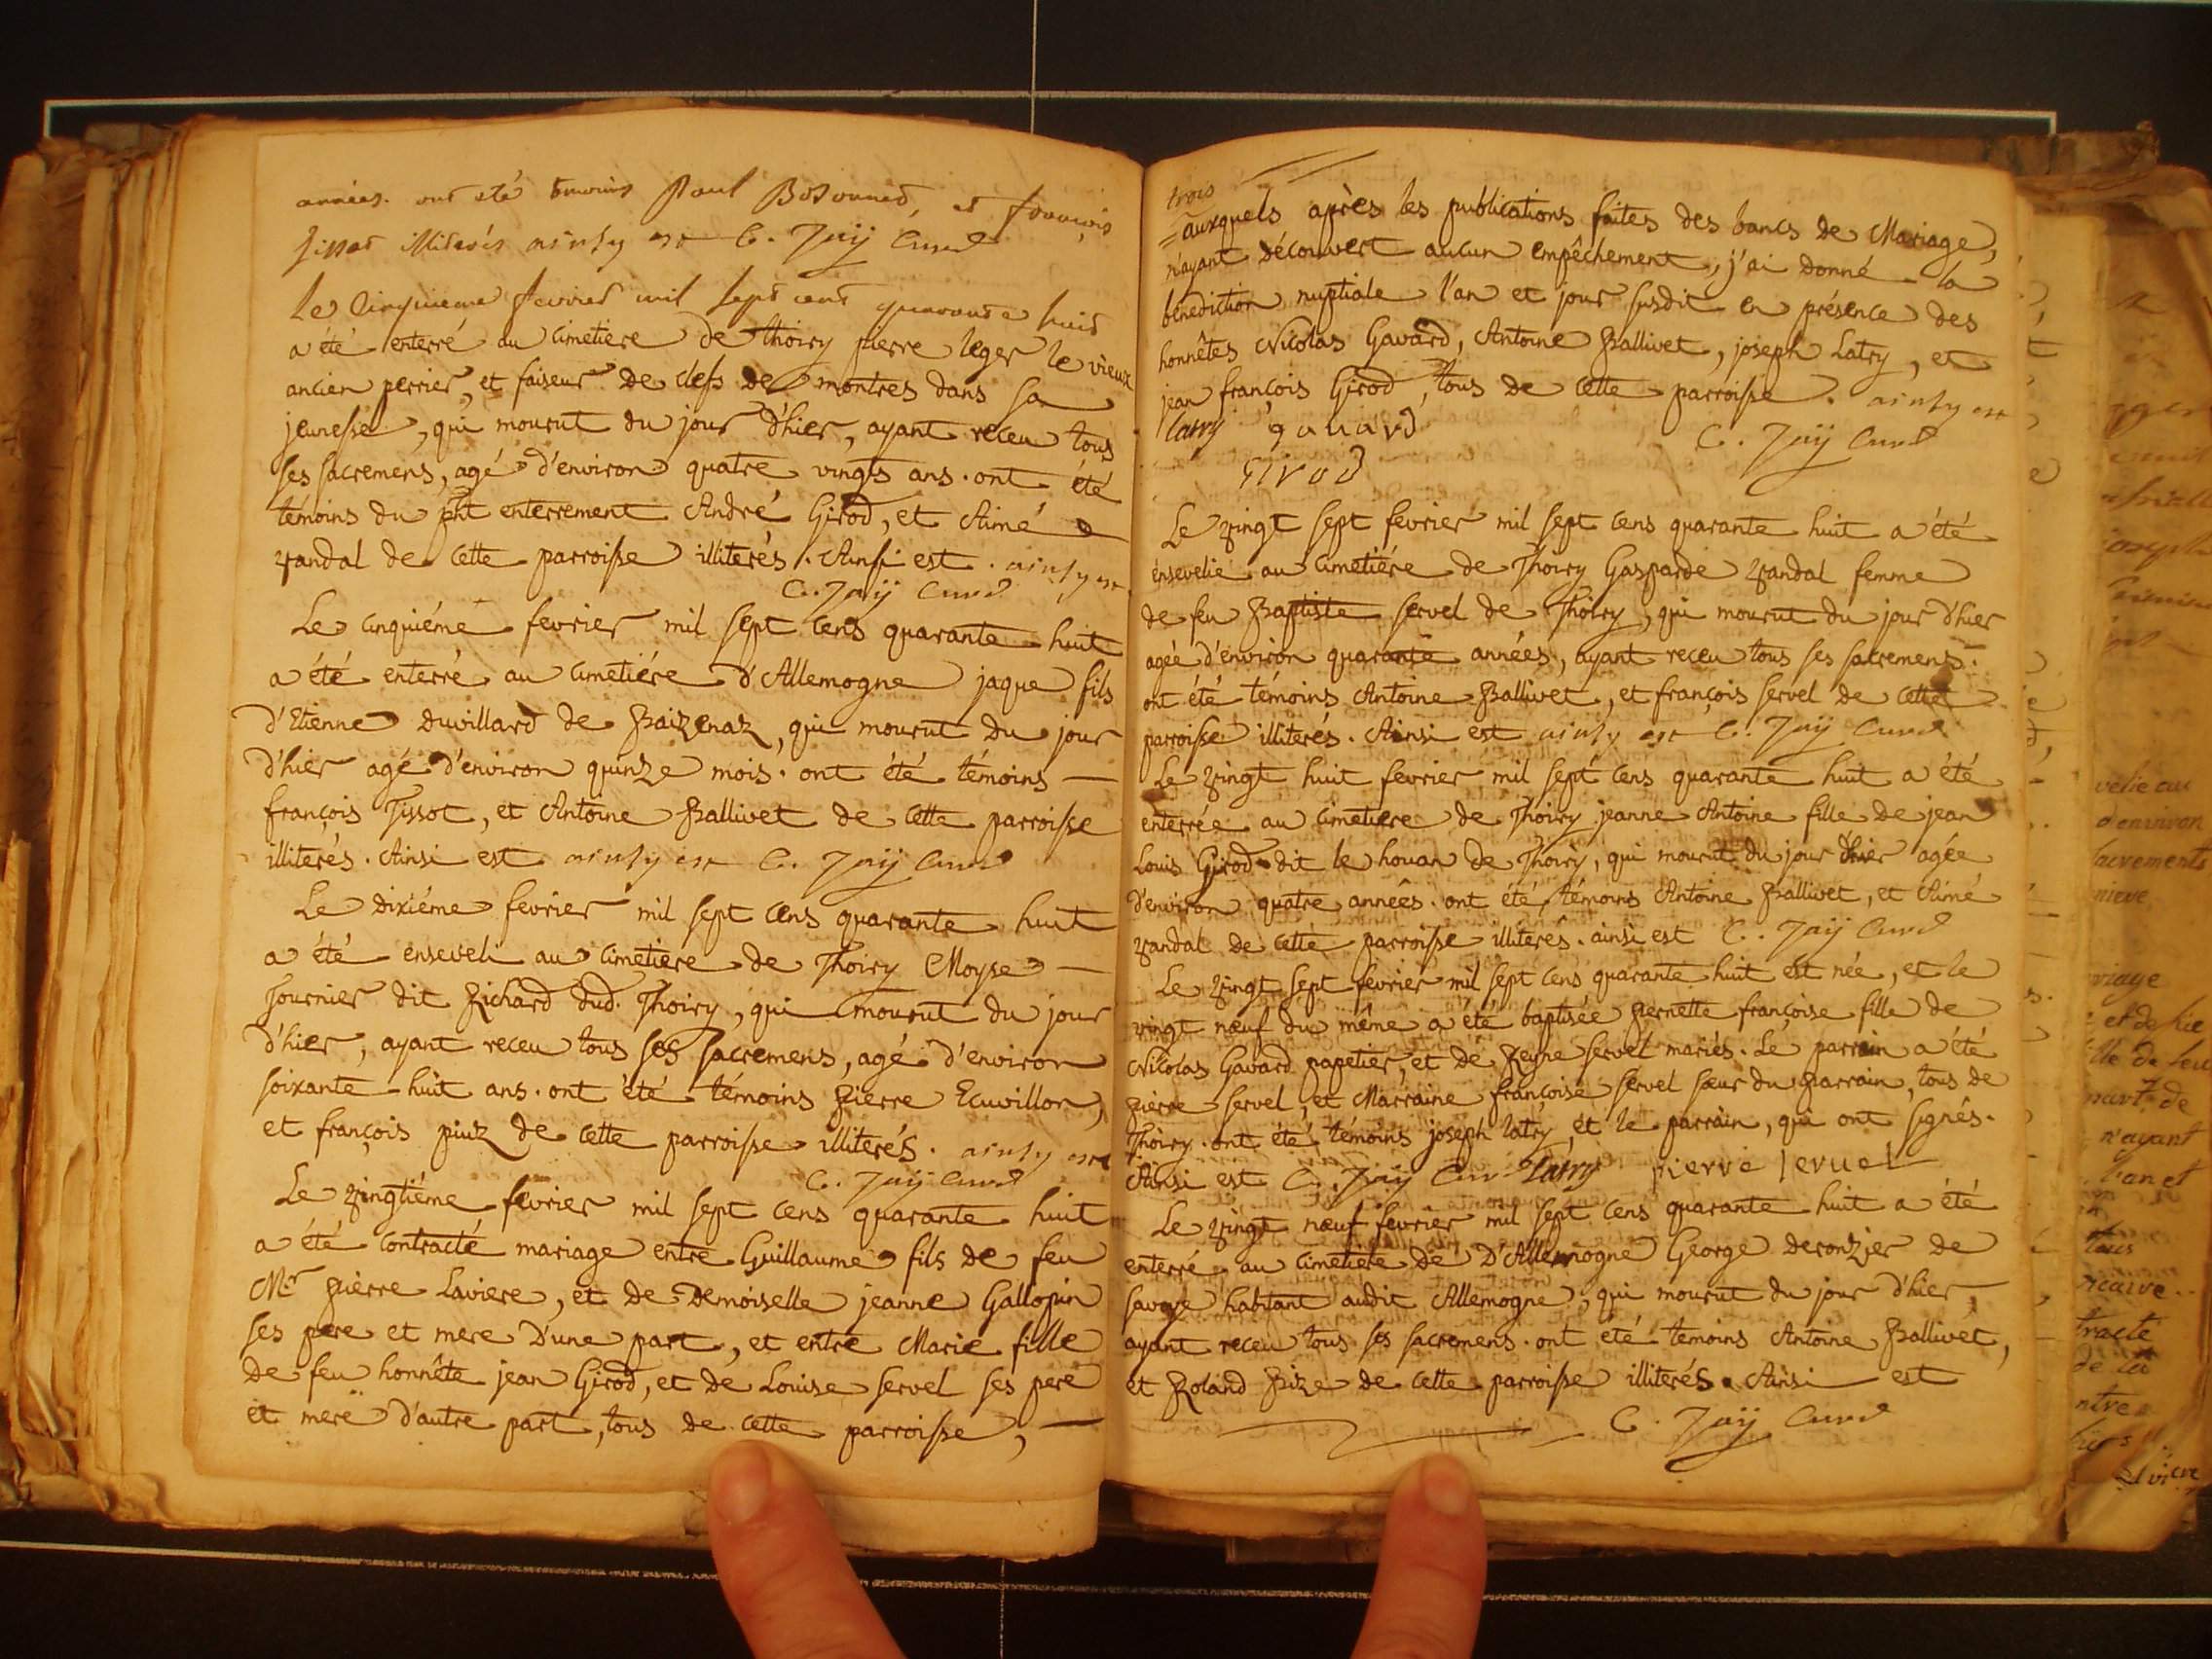 années. ont eté temoins Paul Bosonnet, et françois
Tissot illiterés ainsy est C. Jaÿ Curé
Le Cinquieme fevrier mil sept cent quarante huit
a été enterré au cimetiere de thoiry pierre leger le vieux
ancien perrier, et faiseur de clefs de montres dans sa
jeunesse, qui mourut du jour d'hier, ayant receu tous
ses sacremens, agé d'environ quatre vingts ans. ont été
témoins du pnt enterrement André Girod, et Aimé
vandal de cette parroisse illiterés. Ainsi est. ainsy est
C. Jaÿ Curé
Le cinquiéme fevrier mil sept cens quarante huit
a été enterré au cimetiére d'Allemogne jaque fils
d'Etienne duvillard de Baizenaz, qui mourut du jour
d'hier agé d'environ quinze mois. ont été témoins
françois Tissot, et Antoine Ballivet de cette parroisse
illiterés. Ainsi est ainsy est C. Jaÿ Curé
Le dixiéme fevrier mil sept cens quarante huit
a été enseveli au cimetiere de Thoiry Moyse
fournier dit Richard dud. Thoiry, qui mourut du jour
d'hier, ayant receu tous ses sacremens, agé d'environ
soixante huit ans. ont été témoins Pierre Ecuvillon,
et françois piuz de cette parroisse illiterés. ainsy est
C. Jaÿ Curé
Le vingtiéme fevrier mil sept cens quarante huit
a été contracté mariage entre Guillaume fils de feu
Mr. Pierre Laviere, et de Demoiselle jeanne Gallopin
ses pere et mere d'une part, et entre Marie fille
de feu honnête jean Girod, et de Louise servel ses pere
et mere d'autre part, tous de cette parroisse,
trois
auxquels après les publications faites des bancs de Mariage,
n'ayant découvert aucun empêchement, j'ai donné la
benediction nuptiale l'an et jour susdit en présence des
honnêtes Nicolas Gavard, Antoine Ballivet, joseph Latry, et
jean françois Girod, tous de cette parroisse. ainsy est
latry gauard C. Jaÿ Curé
Girod
Le vingt sept fevrier mil sept cens quarante huit a été
ensevelie au cimetiére de Thoiry Gasparde vandal femme
de feu Baptiste servel de Thoiry, qui mourut du jour d'hier
agée d'environ quarante années, ayant receu tous ses sacremens.
ont été témoins Antoine Ballivet, et françois servel de cette
parroisse illiterés. Ainsi est ainsy est C. Jaÿ Curé
Le vingt huit fevrier mil sept cens quarante huit a été
enterrée au cimetiere de Thoiry jeanne Antoine fille de jean
Louis Girod dit le houan de Thoiry, qui mourut du jour d'hier agée
d'environ quatre années. ont été témoins Antoine Ballivet, et Aimé
vandal de cette parroisse illiterés. ainsi est C. Jaÿ Curé
Le vingt sept fevrier mil sept cens quarante huit est née, et le
vingt nœuf du même a été baptisée Pernette françoise fille de
Nicolas Gavard papetier, et de Reyne servel mariés. Le parrain a été
Pierre servel, et Marraine françoise servel sœur du parrain, tous de
Thoiry. ont été témoins joseph latry, et le parrain, qui ont signés.
Ainsi est C. Jaÿ Cur Latry pierre seruel
Le vingt nœuf fevrier mil sept cens quarante huit a été
enterré au cimetiere de D'Allemogne George deronzier de
savoye habitant audit Allemogne, qui mourut du jour d'hier,
ayant receu tous ses sacremens. ont été temoins Antoine Ballivet,
et Roland Bize de cette parroisse illiterés. Ainsi est
C. Jaÿ Curé